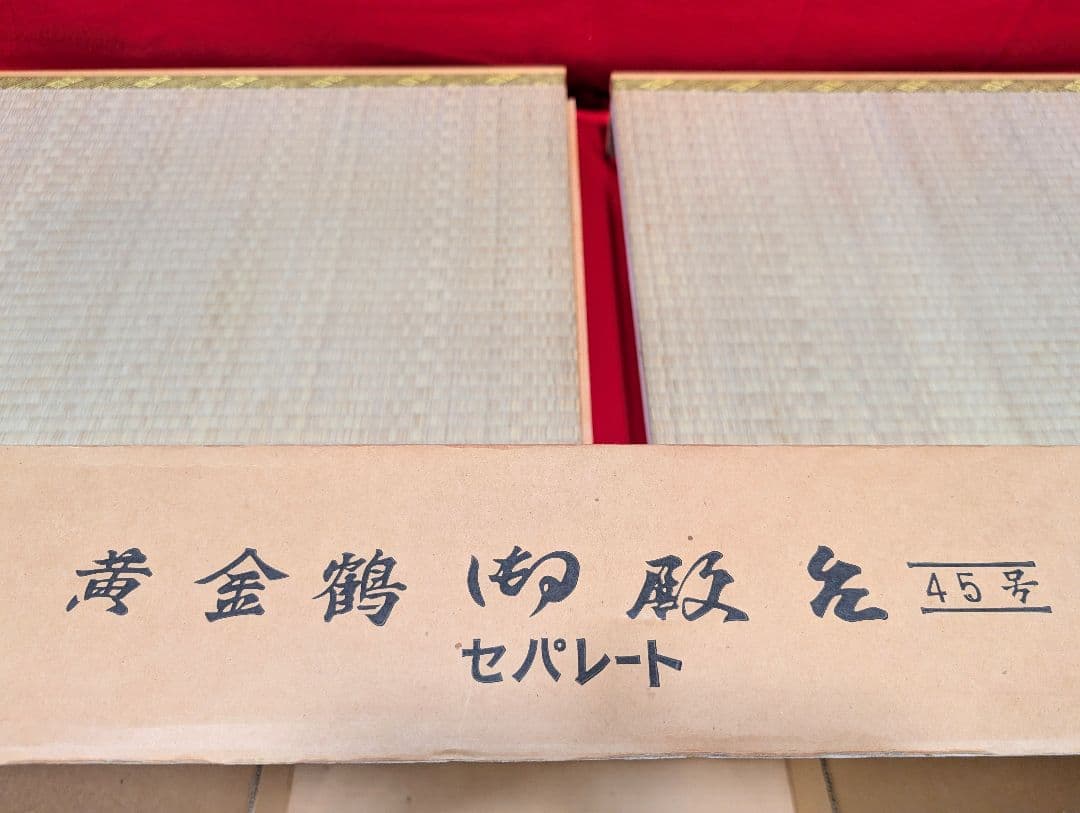 黄金鶴御殿台 45号
セパレート